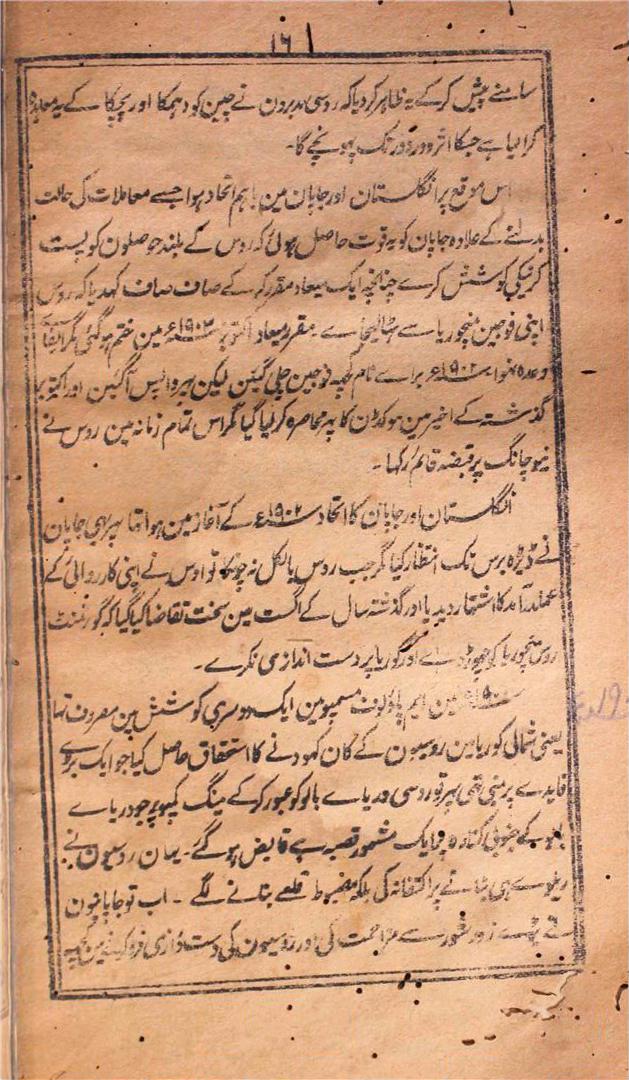 ۱۶
سامنے پیش کرکے یہ ظاہر کردیا کہ روسی مدبرون نے چین کو دہمکا اور پچکا کے یہ معاہدہ
کرالیا ہے جسکا اثر دور دور تک پہونچے گا۔
اس موقع پر انگلستان اور جاپان مین باہم اتحاد ہوا جسے معاملات کی حالت
بدلنے کے علاوہ جاپان کو یہ قوت حاصل ہوئی کہ روس کے بلند حوصلون کو پست
کرنیکی کوشش کرے چنانچہ ایک میعاد مقرر کرکے صاف صاف کہدیا کہ روس
اپنی فوجین منچوریا سے ہٹا لیجاے۔ مقررہ میعاد اکتوبر ۱۹۰۳ء مین ختم ہوگئی مگر ایفاے
وعدہ نہوا ۱۹۰۲ء براے نام کچہ فوجین چلی گئین لیکن پہر واپس آگئین اور اکتوبر
گذشتہ کے اخیر مین موکڈن کا پہر محاصرہ کرلیا گیا مگر اس تمام زمانہ مین روس نے
نیوچانگ پر قبضہ قائم رکہا۔
انگلستان اور جاپان کا اتحاد ۱۹۰۲ء کے آغاز مین ہوا تہا پہر بہی جاپان
نے ڈیڑہ برس تک انتظار کیا مگر جب روس بالکل نہ چونکا تو اوس نے اپنی کارروائی کے
عملدرآمد کا اشتہار دیدیا اور گذشتہ سال کے اگست مین سخت تقاضا کیا گیا کہ گورنمنٹ
روس منچوریا کو چہوڑ دے اور کوریا پر دست اندازی نکرے۔
مین ایم پاؤلوف سیمیو مین ایک دوسری کوشش مین مصروف تہا
یعنی شمالی کوریا مین روسیون کے کان کہودنے کا استحقاق حاصل کیا جو ایک بڑے
فایدے پر مبنی تہی پہر تو روسی دریاے یالو کو عبور کرکے مینگ کمپو پر جو دریاے
یالو کے جنوبی کنارہ پر ایک مشہور قصبہ ہے قابض ہوگئے۔ یہان روسیون نے
ریلوے ہی بنانے پر اکتفا نہ کی بلکہ مضبوط قلعے بنانے لگے۔ اب تو جاپانیون
نے بڑے زور شور سے مزاحمت کی اور روسیون کی دست درازی فرو کرنے مین کچہ